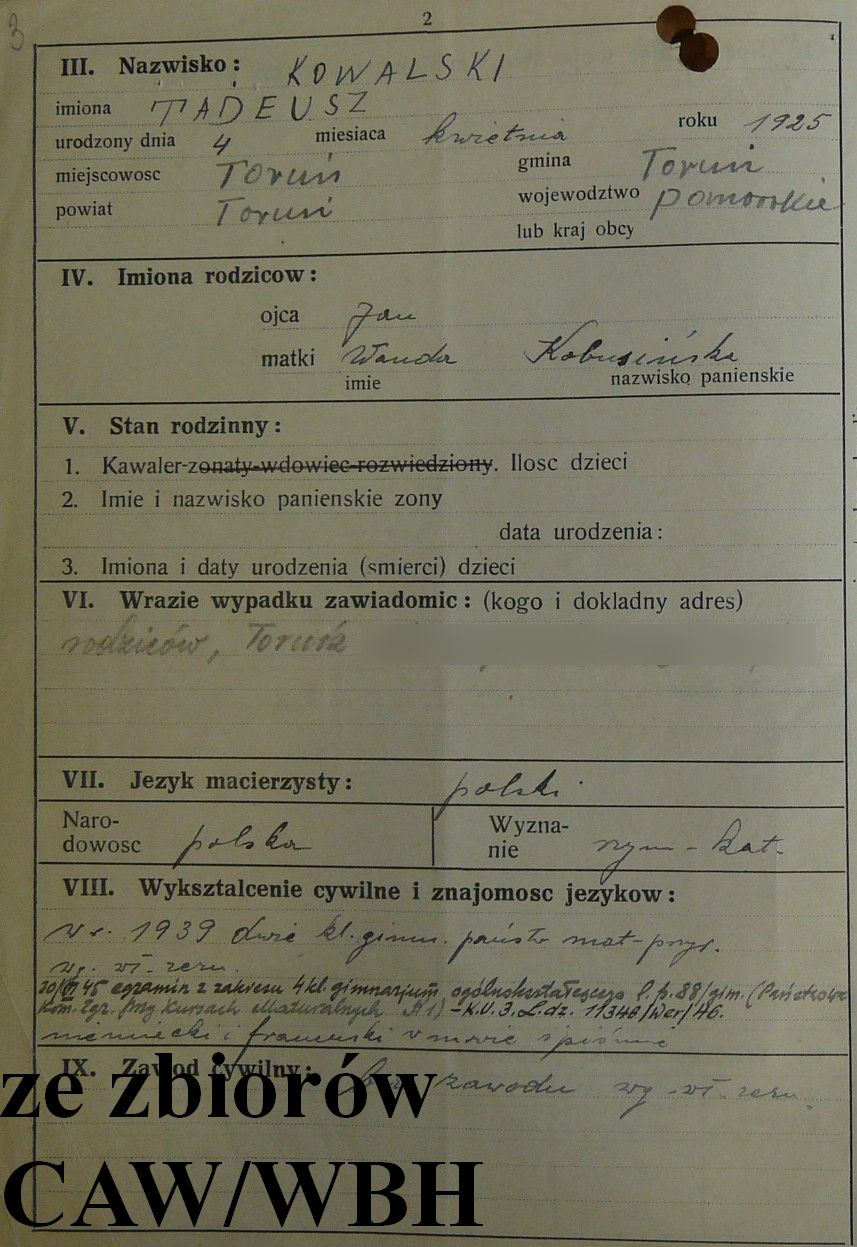 3
2
III. Nazwisko: KOWALSKI
imiona TADEUSZ
urodzony dnia 4 miesiaca kwietnia roku 1925
miejscowosc Toruń gmina Toruń
powiat Toruń wojewodztwo pomorskie
lub kraj obcy
IV. Imiona rodzicow:
ojca Jan
matki Wanda Kobusińska
imie nazwisko panienskie
V. Stan rodzinny:
1. Kawaler-zonaty-wdowiec-rozwiedziony. Ilosc dzieci
2. Imie i nazwisko panienskie zony
data urodzenia:
3. Imiona i daty urodzenia (smierci) dzieci
VI. Wrazie wypadku zawiadomic: (kogo i dokladny adres)
rodziców, Toruń
VII. Jezyk macierzysty: polski
Naro-
dowosc polska
Wyzna-
nie rzym-kat.
VIII. Wyksztalcenie cywilne i znajomosc jezykow:
w r. 1939 dwie kl. gimn. państw mat-przyr.
wg. wł. zezn.
45 egzamin z zakresu 4 kl. gimnazjum ogólnokształcącego l.p. 88/gim. (Państwowa
Kom. Egz. przy Kursach Maturalnych A1) - K.U.3. L.dz. 11346/Wer/46.
niemiecki i francuski w mowie i piśmie
IX. Zawod cywilny: bez zawodu wg. wł. zezn.
ze zbiorów
CAW/WBH